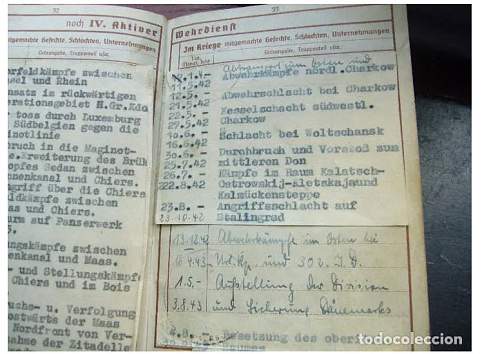 32
noch IV. Aktiver
mitgemachte Gefechte, Schlachten, Unternehmungen
Ortsangabe, Truppenteil usw.
erfeldkämpfe zwischen
sel und Rhein
nsatz im rückwärtigen
erationsgebiet H.Gr.Kdo
toss durch Luxemburg
Südbelgien gegen die
inotlinie
bruch in die Maginot-
e.Erweiterung des Brüh
pfes Sedan zwischen
enkanal und Chiers.
griff über die Chiers
ldkämpfe zwischen
as und Chiers.
urm auf Panzerwerk
5
ungskämpfe zwischen
enkanal und Maas.
- und Stellungskämpfe
Chiers und im Bois
uchs- u. Verfolgung
ostwärts der Maas
Nordfront von Ver-
ahme der Zitadelle
33
Wehrdienst
Im Kriege mitgemachte Gefechte, Schlachten, Unternehmungen
Ortsangabe, Truppenteil usw.
im Osten und
.1.4- Abwehrkämpfe nördl.Charkow
11.5.42
12.5.- Abwehrschlacht bei Charkow
16.5.42
17.5.- Kesselschacht südwestl.
27.5.42 Charkow
10.6.- Schlacht bei Woltschansk
30.6.- Durchbruch und Vorstoß zum
25.7.42 mittleren Don
26.7.- Kämpfe im Raum Kalatsch-
22.8.42 Ostrowskij-Aletskaja und
Kalmückensteppe
23.8.- Angriffsschlacht auf
23.10.42 Stalingrad
13.12.42 Abwehrkämpfe im Osten bei
6.4.43- Url.Kp. und 302 I.D.
1.5.- Aufstellung der Division
3.8.43 und Sicherung Dänemarks
.8.- Besetzung des ober
todocoleccion